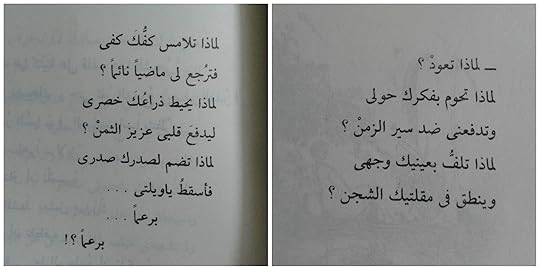 لماذا تلامس كفُّكَ كفى
فترُجع لى ماضياً نائماً ؟
لماذا يحيط ذراعُكَ خصرى
ليدفع قلبى عزيز الثمنْ ؟
لماذا تضم لصدرك صدرى
فأسقطُ ياويلتى . . .
برعماً . . .
برعماً ؟!
ــ لماذا تعودْ ؟
لماذا تحوم بفكرك حولى
وتدفعنى ضد سير الزمنْ ؟
لماذا تلفُّ بعينيك وجهى
وينطق فى مقلتيك الشجن ؟